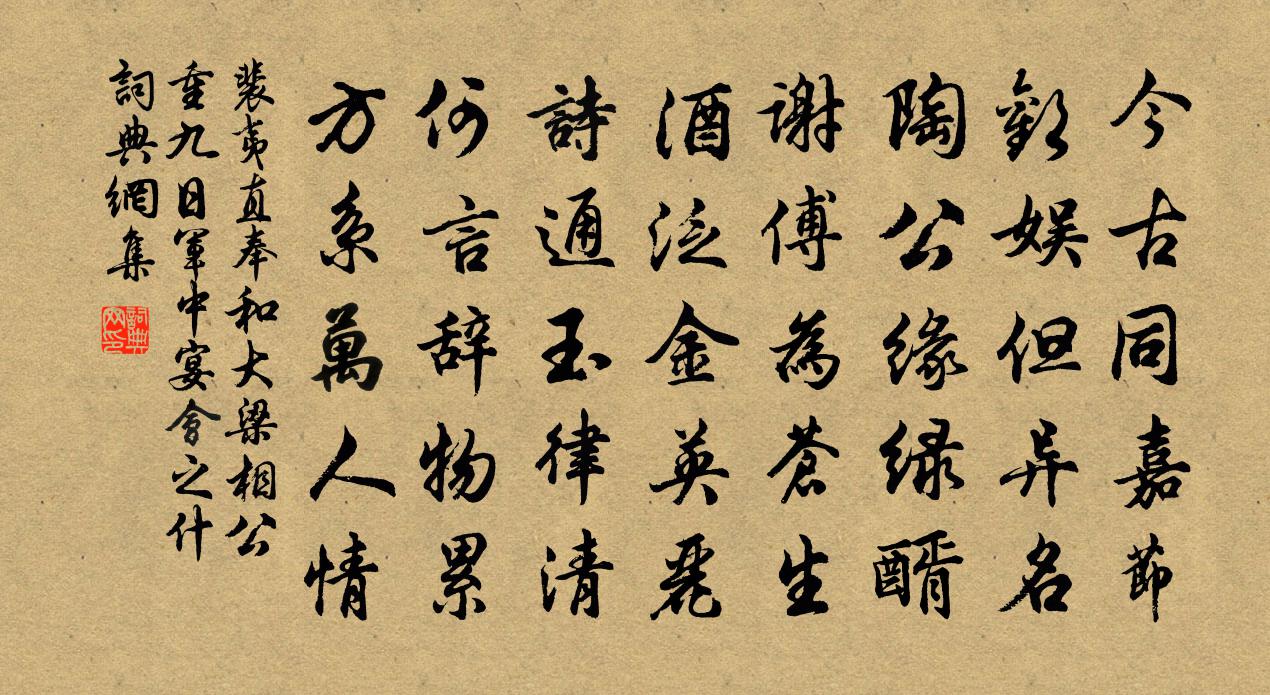 今古同嘉節
歡娱但异名
陶公緣緑醑
謝傅為蒼生
酒泛金英麗
詩通玉律清
何言辞物累
方系萬人情
裴夷直奉和大梁相公
重九日軍中宴會之什
詞典網集
詞典网印